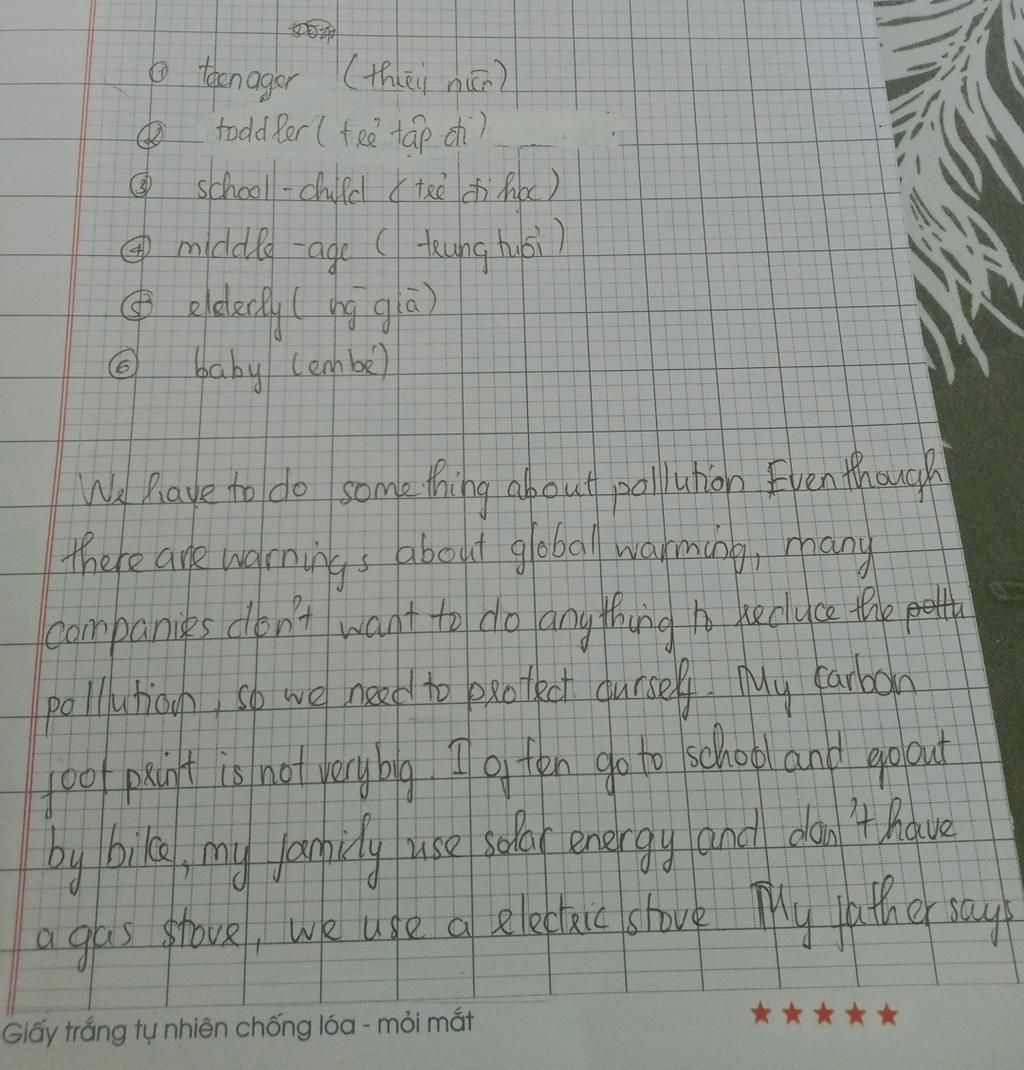 ① teenager (thiếu niên)
② toddler (trẻ tập đi)
③ school-child (trẻ đi học)
④ middle-age (trung tuổi)
⑤ elderly (ng già)
⑥ baby (em bé)
We have to do something about pollution Even though
there are warnings about global warming, many
companies don't want to do anything to reduce the pollu
pollution, so we need to protect ourself. My carbon
foot print is not very big. I often go to school and go out
by bike, my family use solar energy and don't have
a gas stove, we use a electric stove My father says
Giấy trắng tự nhiên chống lóa - mỏi mắt